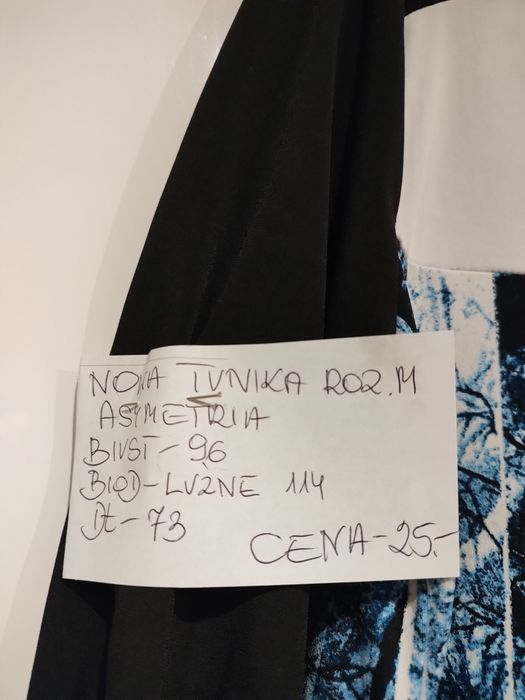 NOWA TUNIKA ROZ. M
ASYMETRIA
BIUST - 96
BIOD - LUŹNE 114
Dł - 73
CENA - 25.-